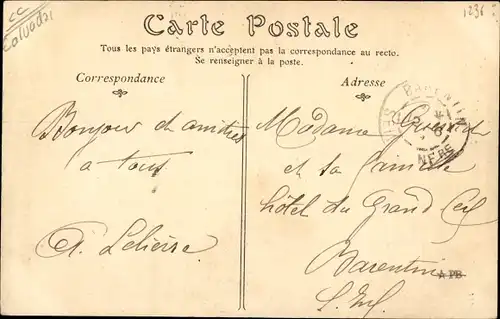 CC
Calvados
1236
Carte Postale
Tous les pays étrangers n'acceptent pas la correspondance au recto.
Se renseigner à la poste.
Correspondance
Adresse
Bonjour et amitiés
a tous
A. Lelierre
Madame
et sa famille
hôtel du Grand Cerf
Barentin
S. Inf
BARENTIN
INFRE
APB